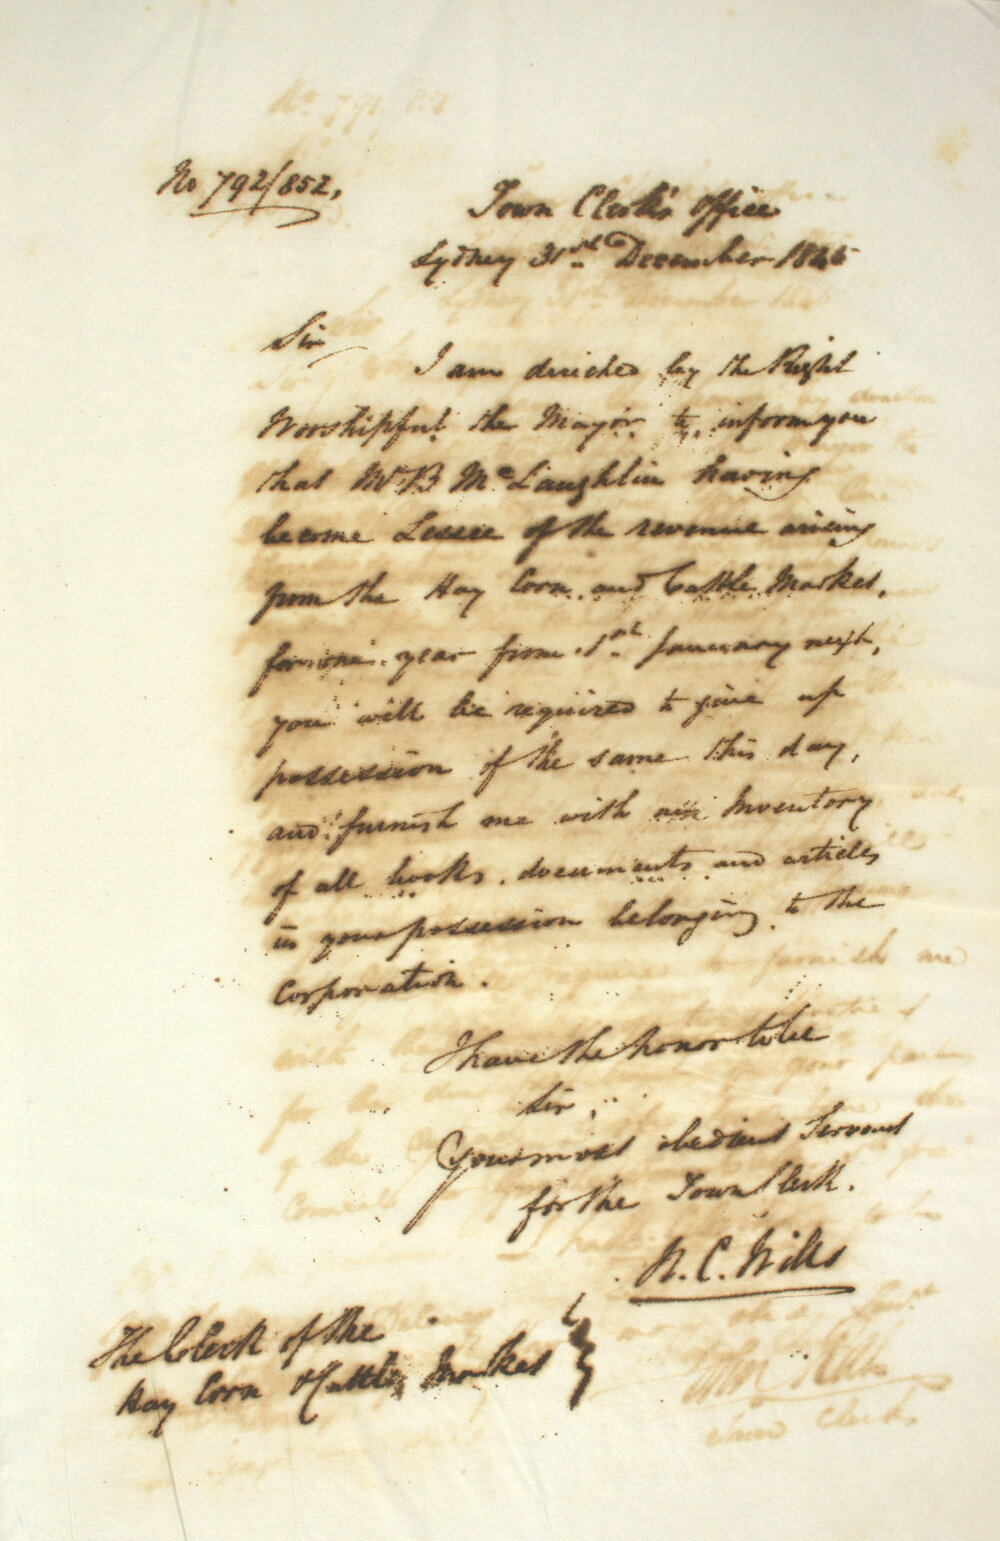 No 792/852,
Town Clerk's Office
Sydney 31st December 1845
Sir
I am directed by the Right
Worshipful the Mayor to inform you
that Mr B Mc Laughlin having
become Lessee of the revenue arising
from the Hay Corn and Cattle Market,
for one year from 1st January next,
you will be required to give up
possession of the same this day,
and furnish me with an Inventory
of all books, documents and articles
in your possession belonging to the
Corporation.
I have the honor to be
Sir,
Your most obedient Servant
for the Town Clerk.
W. C. Wills
The Clerk of the
Hay Corn & Cattle Market